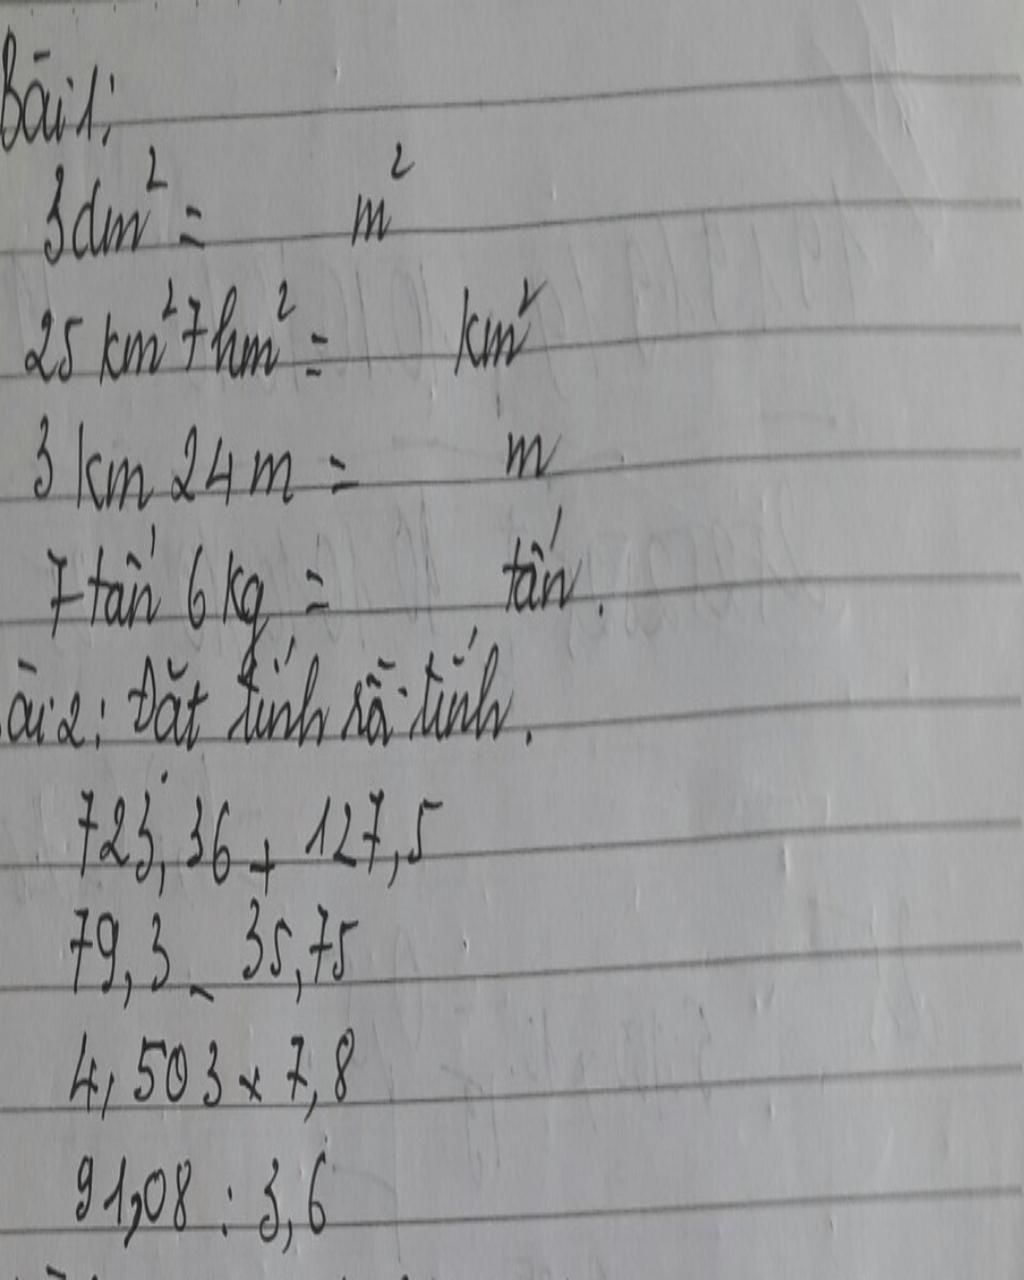 Bài 1:
3dm² = m²
25 km² 7hm² = km²
3 km 24m = m
7 tấn 6 kg = tấn.
ài 2: Đặt tính rồi tính.
723,36 + 127,5
79,3 - 35,75
4,503 x 7,8
91,08 : 3,6